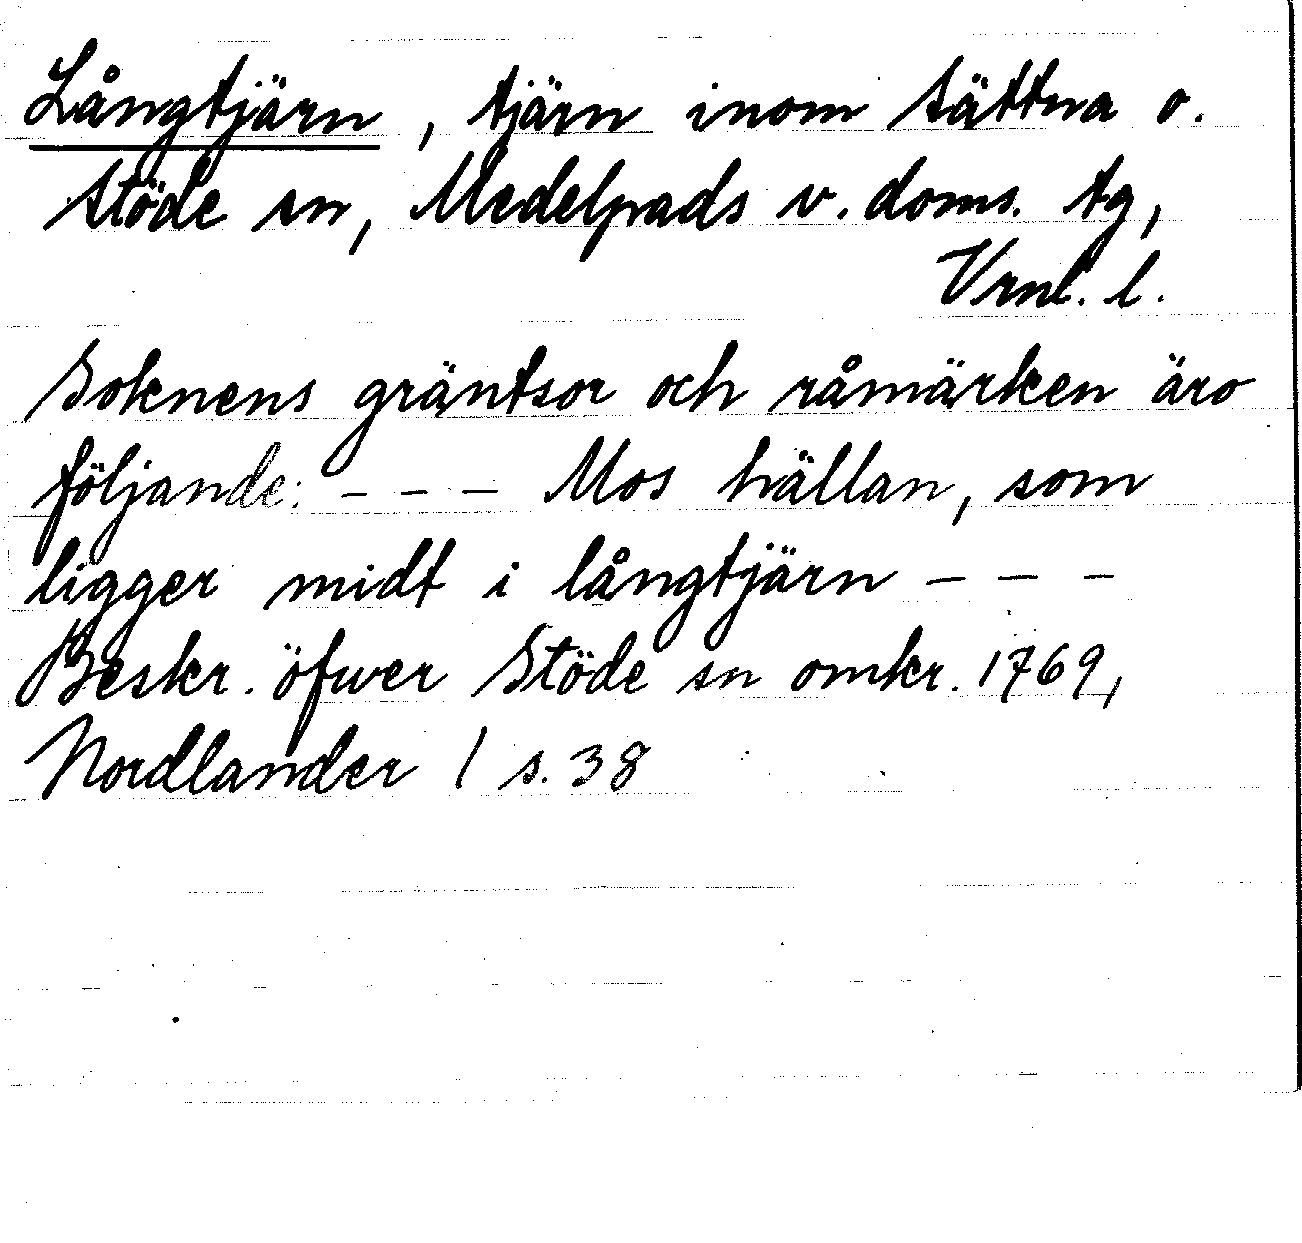 Långtjärn, tjärn inom Sättna o.
Stöde sn, Medelpads v. doms. tg,
Vrnl. l.
Soknens gräntsor och råmärken äro
följande: - - - Mos hällan, som
ligger midt i långtjärn - - -
Beskr. öfwer Stöde sn omkr. 1769,
Nordlander 1 s. 38